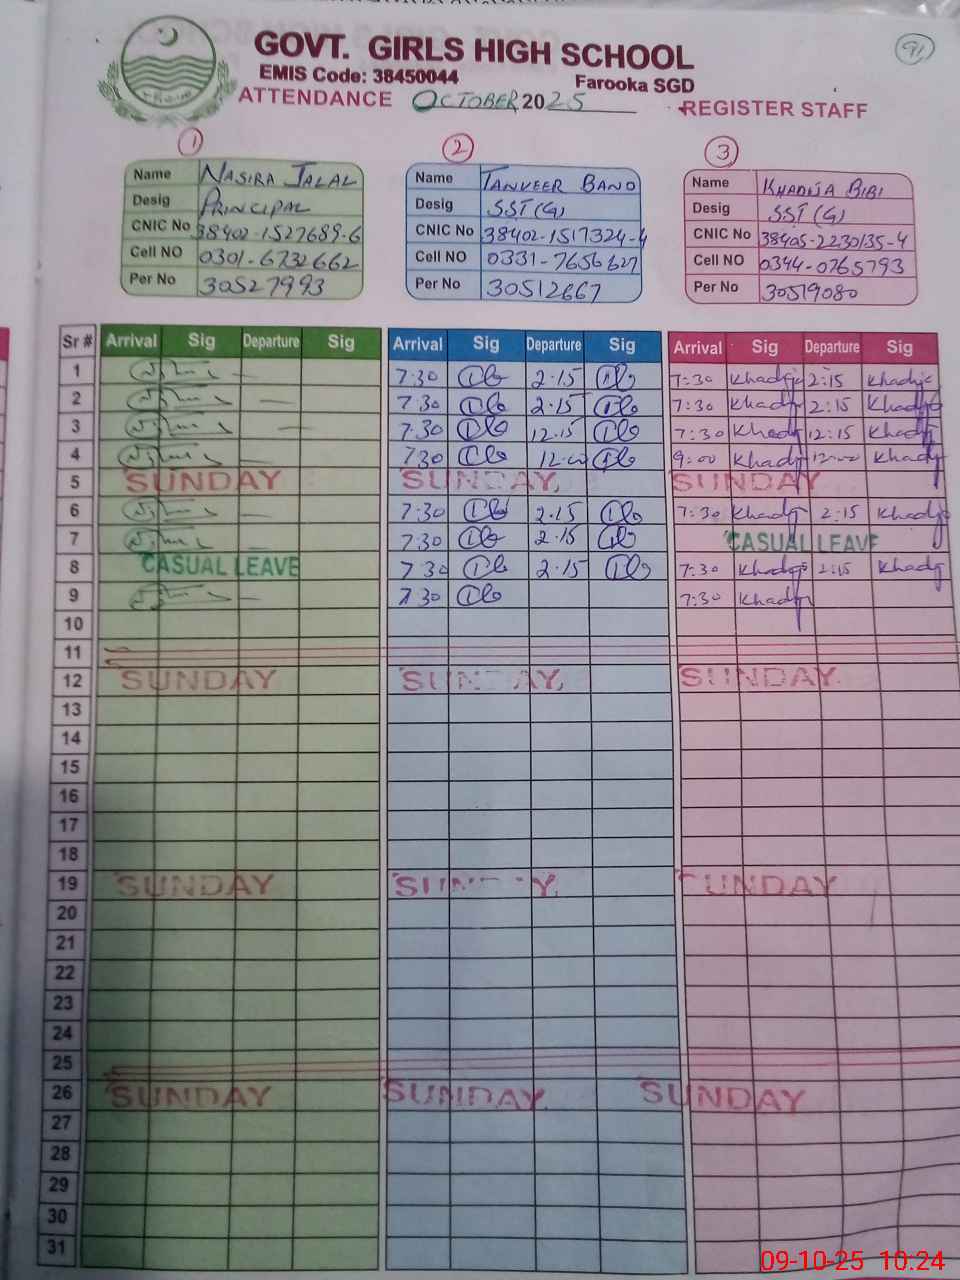 91
GOVT. GIRLS HIGH SCHOOL
EMIS Code: 38450044 Farooka SGD
ATTENDANCE OCTOBER 2025 REGISTER STAFF
1 2 3
Name NASIRA JALAL Name TANVEER BANO Name KHADIJA BIBI
Desig PRINCIPAL Desig SST (G) Desig SST (G)
CNIC No 38402-1527689-6 CNIC No 38402-1517324-4 CNIC No 38405-2230135-4
Cell NO 0301-6732662 Cell NO 0331-7656627 Cell NO 0344-0765793
Per No 30527993 Per No 30512667 Per No 30519080
Sr # Arrival Sig Departure Sig Arrival Sig Departure Sig Arrival Sig Departure Sig
1 7:30 2.15 7:30 Khadija 2:15 Khadija
2 7.30 2.15 7:30 Khadija 2:15 Khadija
3 7.30 12.15 7:30 Khadija 12:15 Khadija
4 7.30 12.00 9:00 Khadija 12:00 Khadija
5 SUNDAY SUNDAY SUNDAY
6 7:30 2.15 7:30 Khadija 2:15 Khadija
7 7:30 2.15 CASUAL LEAVE
8 CASUAL LEAVE 7:30 2.15 7:30 Khadija 2:15 Khadija
9 7.30 7:30 Khadija
10
11
12 SUNDAY SUNDAY SUNDAY
13
14
15
16
17
18
19 SUNDAY SUNDAY SUNDAY
20
21
22
23
24
25
26 SUNDAY SUNDAY SUNDAY
27
28
29
30
31
09-10-25 10:24